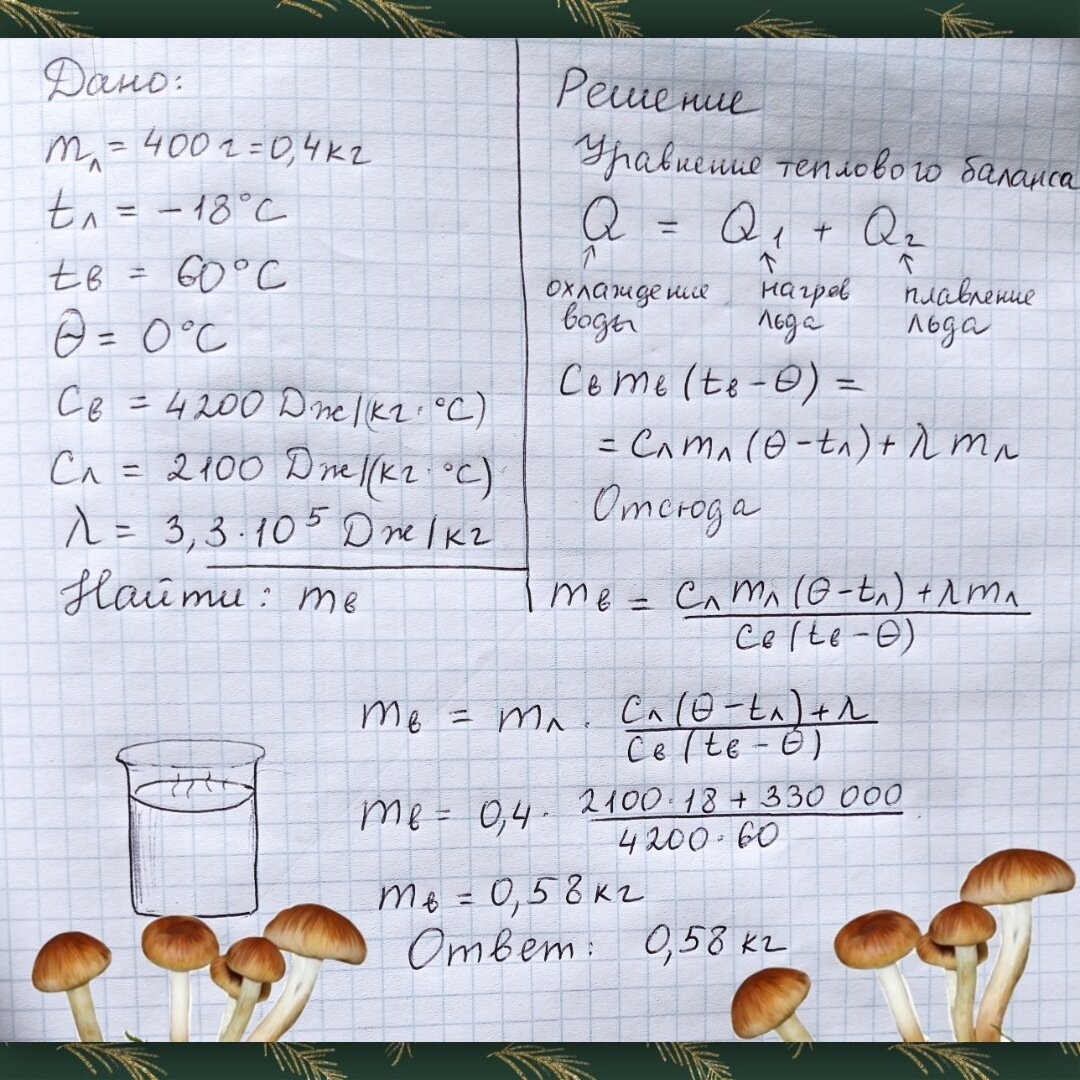 Дано:
mл = 400 г = 0,4 кг
tл = -18°C
tв = 60°C
Θ = 0°C
Cв = 4200 Дж/(кг·°C)
Cл = 2100 Дж/(кг·°C)
λ = 3,3·10⁵ Дж/кг
Найти: mв
Решение
Уравнение теплового баланса
Q = Q₁ + Q₂
охлаждение воды
нагрев льда
плавление льда
Cв mв (tв - Θ) =
= Cл mл (Θ - tл) + λ mл
Отсюда
mв = Cл mл (Θ - tл) + λ mл / Cв (tв - Θ)
mв = mл · Cл (Θ - tл) + λ / Cв (tв - Θ)
mв = 0,4 · 2100·18 + 330 000 / 4200·60
mв = 0,58 кг
Ответ: 0,58 кг